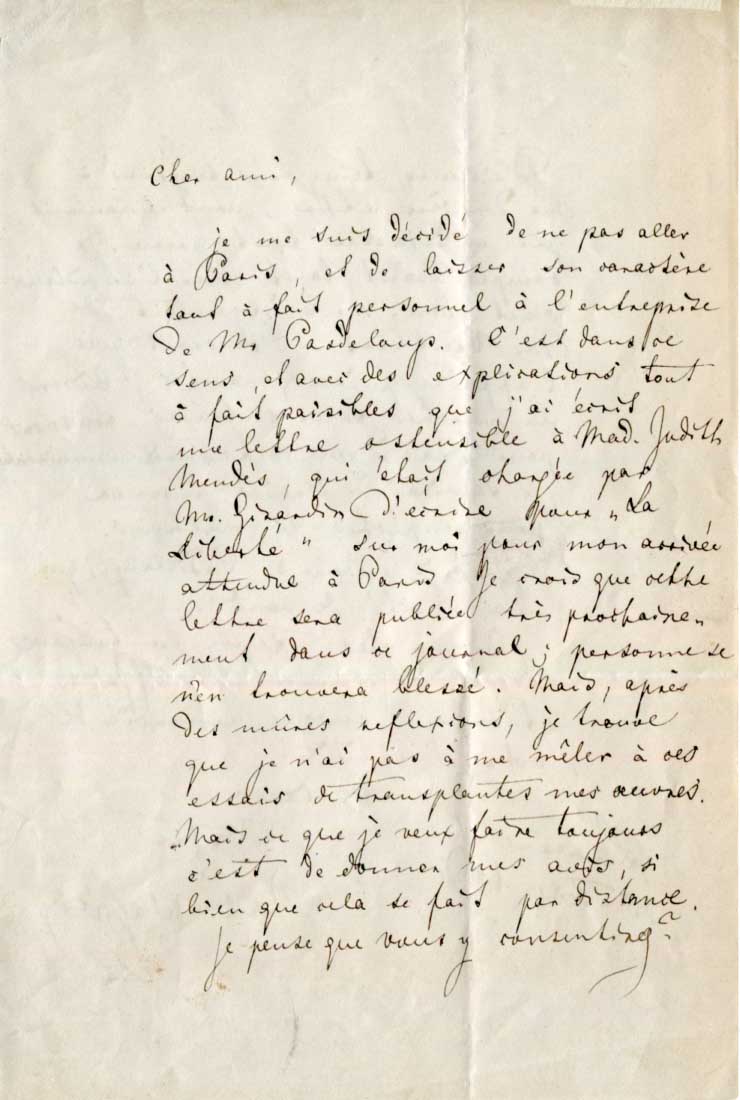 Cher ami,
je me suis décidé de ne pas aller
à Paris, et de laisser son caractère
tout à fait personnel à l'entreprise
de Mr Pasdeloup. C'est dans ce
sens, et avec des explications tout
à fait paisibles que j'ai écrit
une lettre ostensible à Mad. Judith
Mendès, qui était chargée par
Mr. Girardin d'écrire pour „La
Liberté" sur moi pour mon arrivée
attendue à Paris. Je crois que cette
lettre sera publiée très prochaine-
ment dans ce journal; personne se
n'en trouvera blessé. Mais, après
des mûres reflexions, je trouve
que je n'ai pas à me mêler à ces
essais de transplanter mes œuvres.
Mais ce que je veux faire toujours
c'est de donner mes avis, si
bien que cela se fait par distance.
Je pense que vous y consentirez?